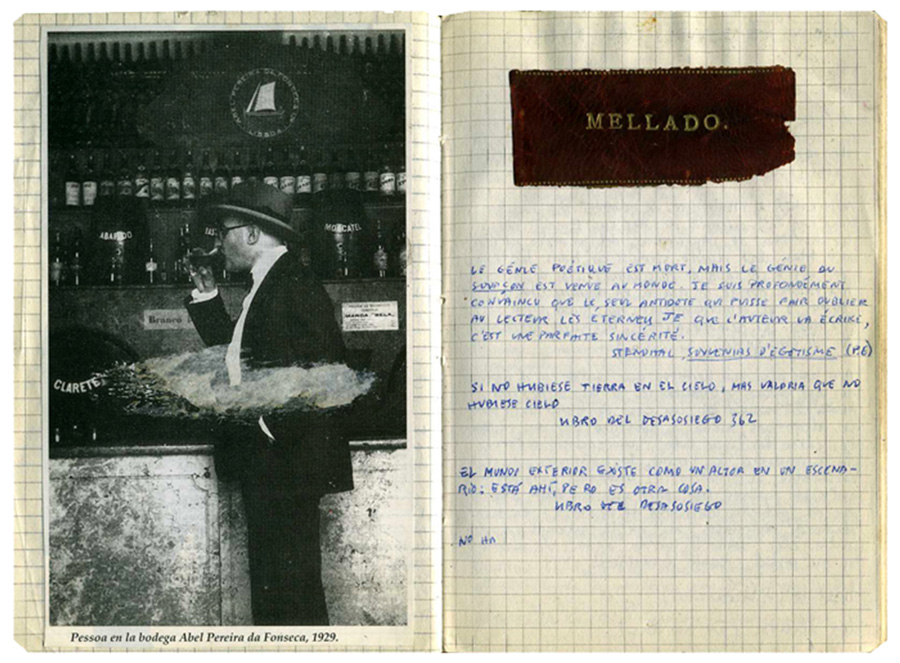 LISBOA
ABAFADO
MOSCATEL
Branco
CLARETE
Pessoa en la bodega Abel Pereira da Fonseca, 1929.
MELLADO.
LE GÉNIE POÉTIQUE EST MORT, MAIS LE GÉNIE DU
SOUPÇON EST VENU AU MONDE. JE SUIS PROFONDÉMENT
CONVAINCU QUE LE SEUL ANTIDOTE QUI PUISSE FAIR OUBLIER
AU LECTEUR LES JE QUE L'AUTEUR VA ÉCRIRE,
C'EST UNE PARFAITE SINCÉRITÉ.
STENDHAL SOUVENIRS D'ÉGOTISME
SI NO HUBIESE TIERRA EN EL CIELO, MAS VALDRIA QUE NO
HUBIESE CIELO
LIBRO DEL DESASOSIEGO 362
EL MUNDO EXTERIOR EXISTE COMO UN ACTOR EN UN ESCENA-
RIO: ESTÁ AHÍ, PERO ES OTRA COSA.
LIBRO DEL DESASOSIEGO
NO HA